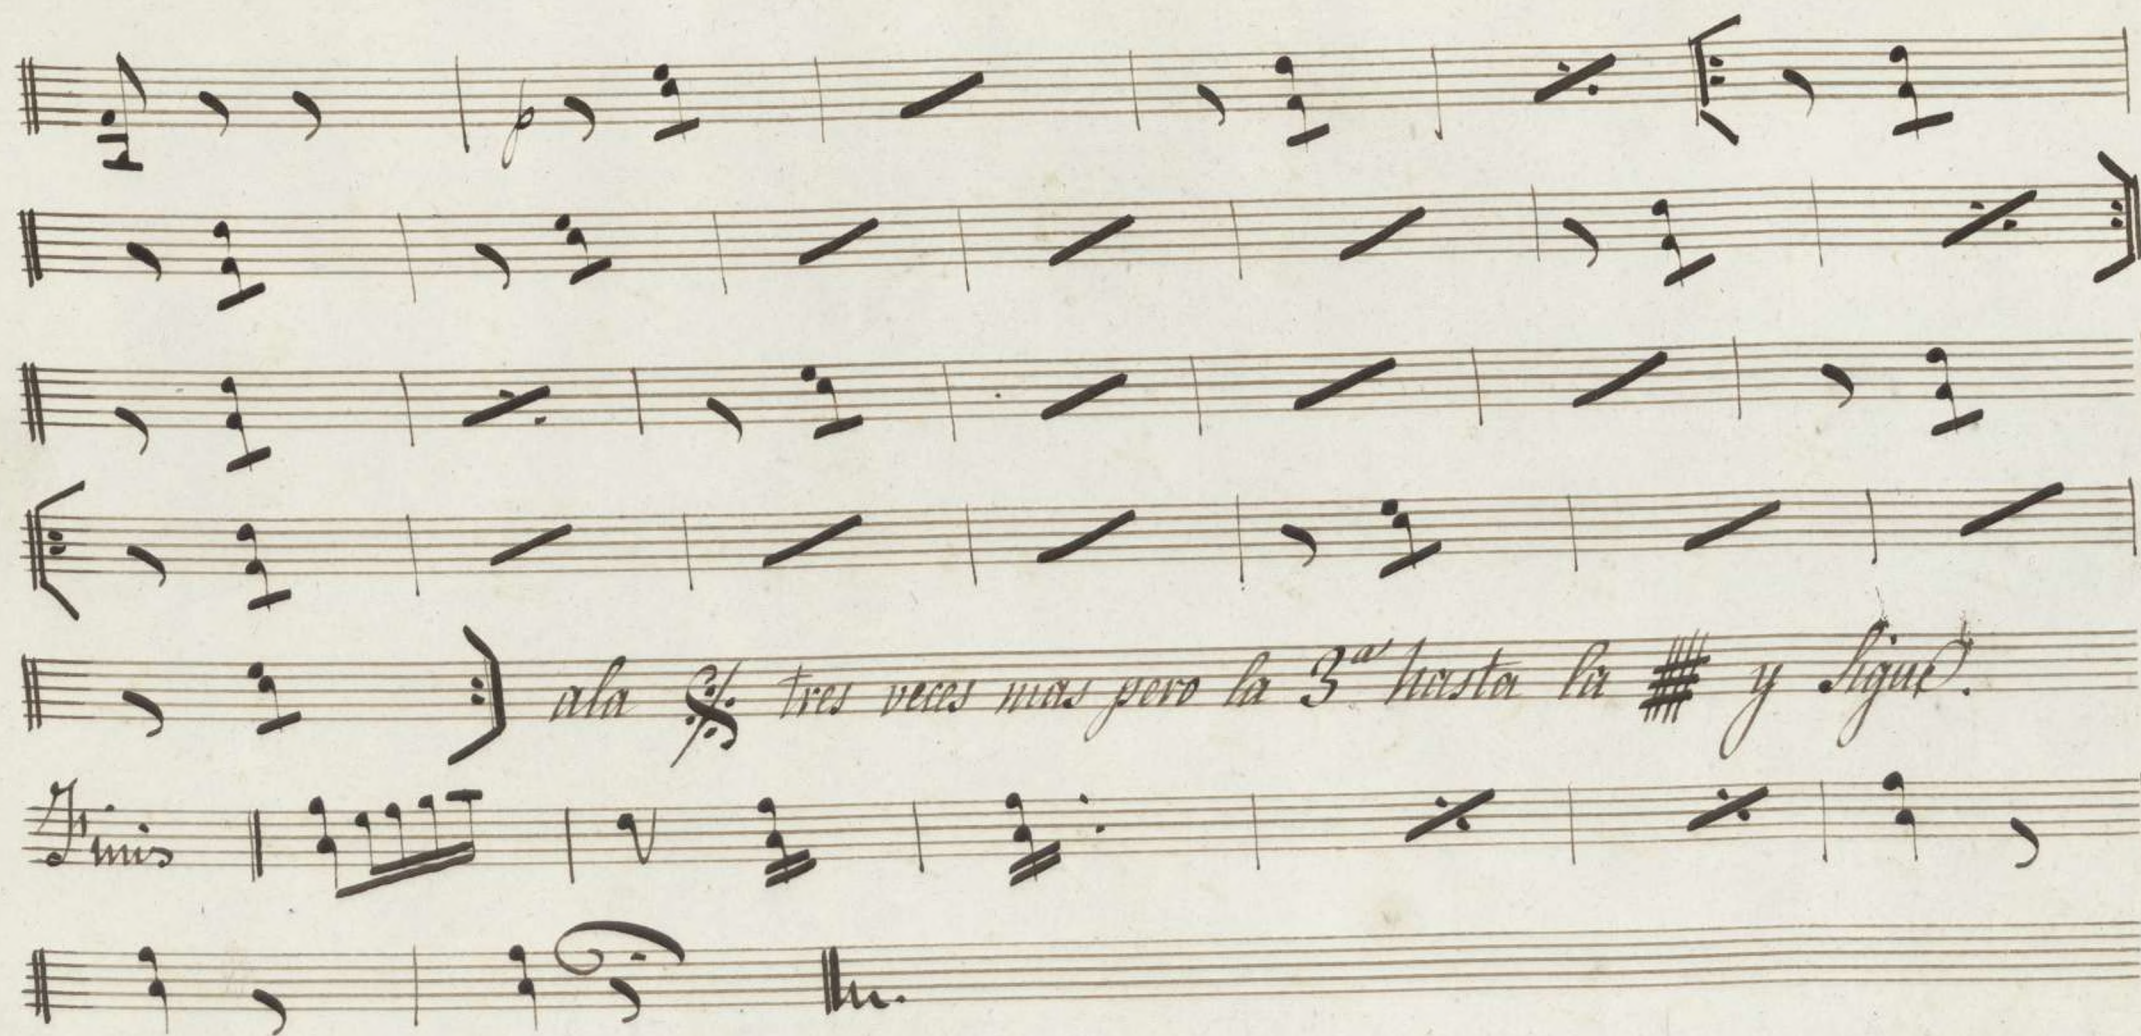 p
ala 𝄋 tres veces mas pero la 3ª hasta la # y sigue.
Finis